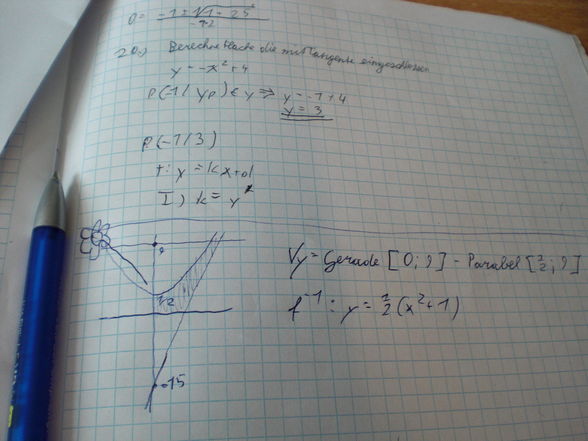 20.) Berechne Fläche die mit Tangente eingeschlossen
y = -x² + 4
P(-1/yp) ∈ y ⇒ y = -1+4
y = 3
P(-1/3)
t: y = kx+d
I) k = y'
9
-15
Vy = Gerade [0; 9] - Parabel [½; 9]
f⁻¹: y = ½(x²+1)